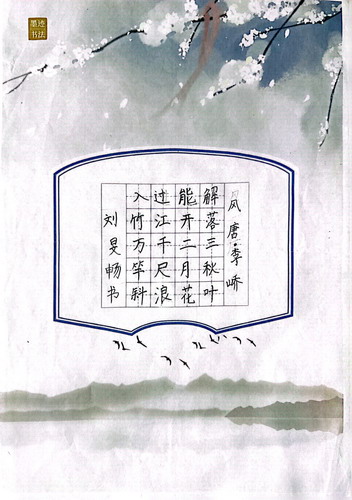 墨迹
书法
风 唐·李峤
解落三秋叶
能开二月花
过江千尺浪
入竹万竿斜
刘旻畅书